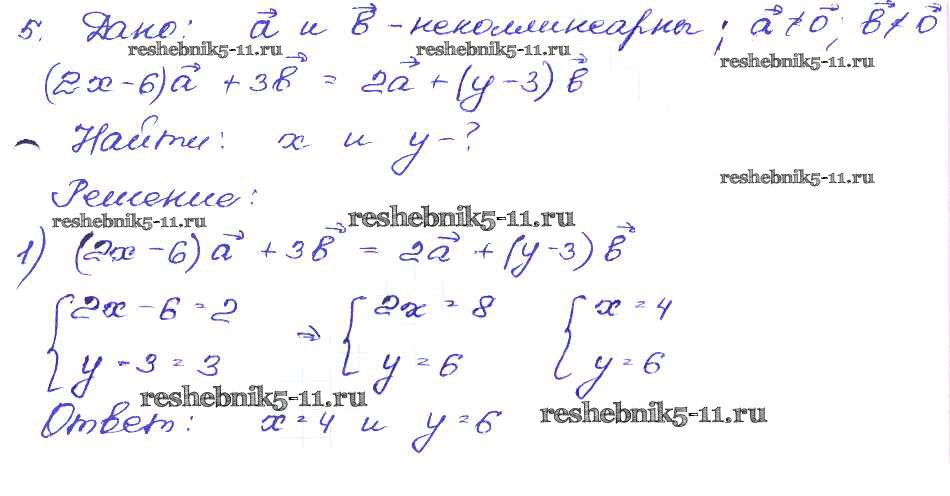 5. Дано: a⃗ и b⃗ - неколлинеарны; a⃗ ≠ 0⃗; b⃗ ≠ 0⃗
reshebnik5-11.ru reshebnik5-11.ru reshebnik5-11.ru
(2x-6)a⃗ + 3b⃗ = 2a⃗ + (y-3)b⃗
Найти: x и y-?
reshebnik5-11.ru
Решение:
reshebnik5-11.ru reshebnik5-11.ru
1) (2x-6)a⃗ + 3b⃗ = 2a⃗ + (y-3)b⃗
{2x-6=2 ⇒ {2x=8 {x=4
y-3=3 y=6 y=6
reshebnik5-11.ru reshebnik5-11.ru
Ответ: x=4 и y=6